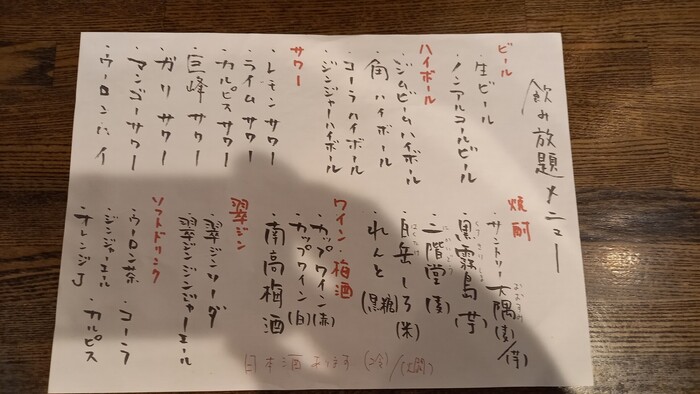 飲み放題メニュー
ビール
・生ビール
・ノンアルコールビール
ハイボール
・ジムビームハイボール
・角ハイボール
・コーラハイボール
・ジンジャーハイボール
サワー
・レモンサワー
・ライムサワー
・カルピスサワー
・巨峰サワー
・ガリサワー
・マンゴーサワー
・ウーロンハイ
焼酎
・サントリー大隅(麦)/(芋)
おおすみ
・黒霧島(芋)
くろきりしま
・二階堂(麦)
にかいどう
・白岳しろ(米)
はくたけ
・れんと(黒糖)
ワイン 梅酒
・カップワイン(赤)
・カップワイン(白)
南高梅酒
翠ジン
・翠ジンソーダ
・翠ジンジンジャーエール
ソフトドリンク
・ウーロン茶 ・コーラ
・ジンジャーエール
・オレンジJ ・カルピス
日本酒あります(冷)/